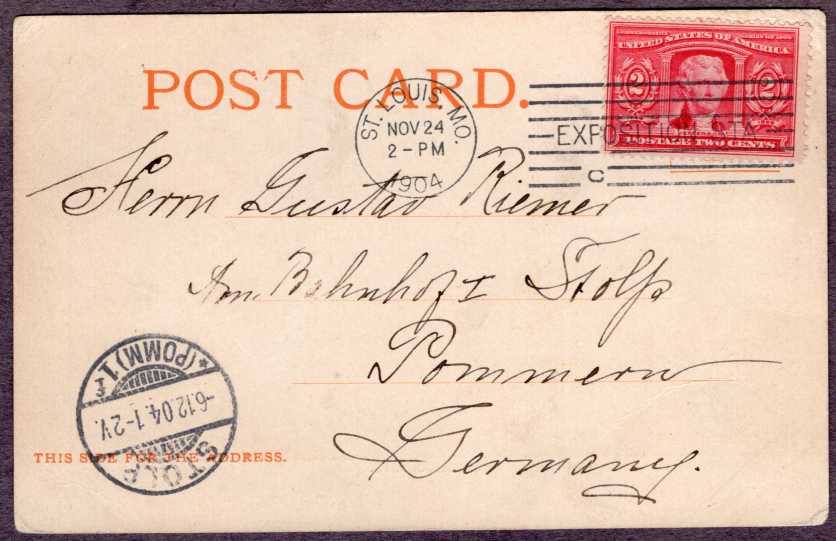 POST CARD.
UNITED STATES OF AMERICA
2 2
POSTAGE TWO CENTS
ST. LOUIS, MO.
NOV 24
2-PM
1904
EXPOSITION STA.
C
Herrn Gustav Riemer
Am Bahnhof I Stolp
Pommern
Germany.
*(POMM) 1 r
-6.12.04.1-2V.
STOLP
THIS SIDE FOR THE ADDRESS.